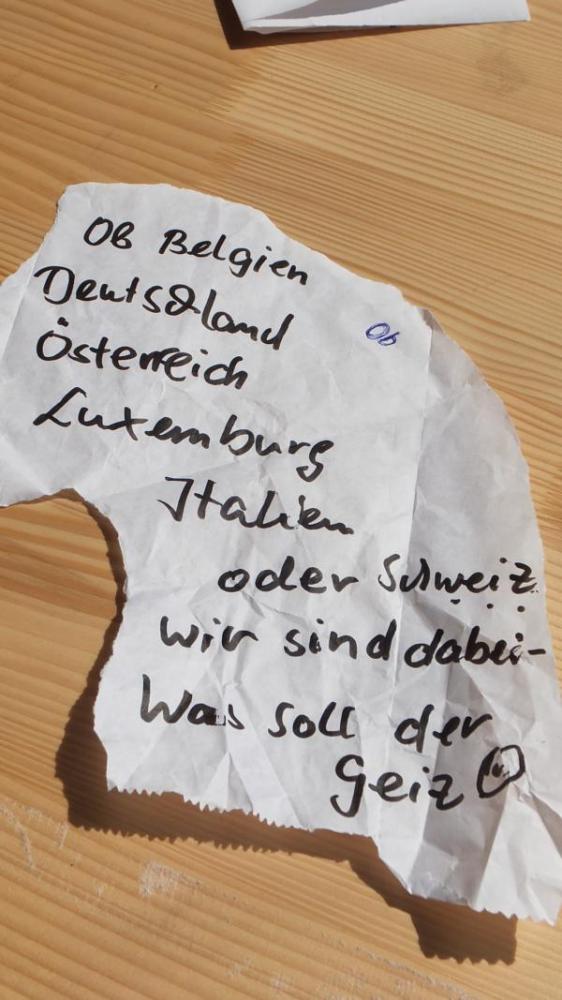 Ob Belgien
Deutschland
Ob
Österreich
Luxemburg
Italien
oder Schweiz
wir sind dabei-
Was soll der
Geiz